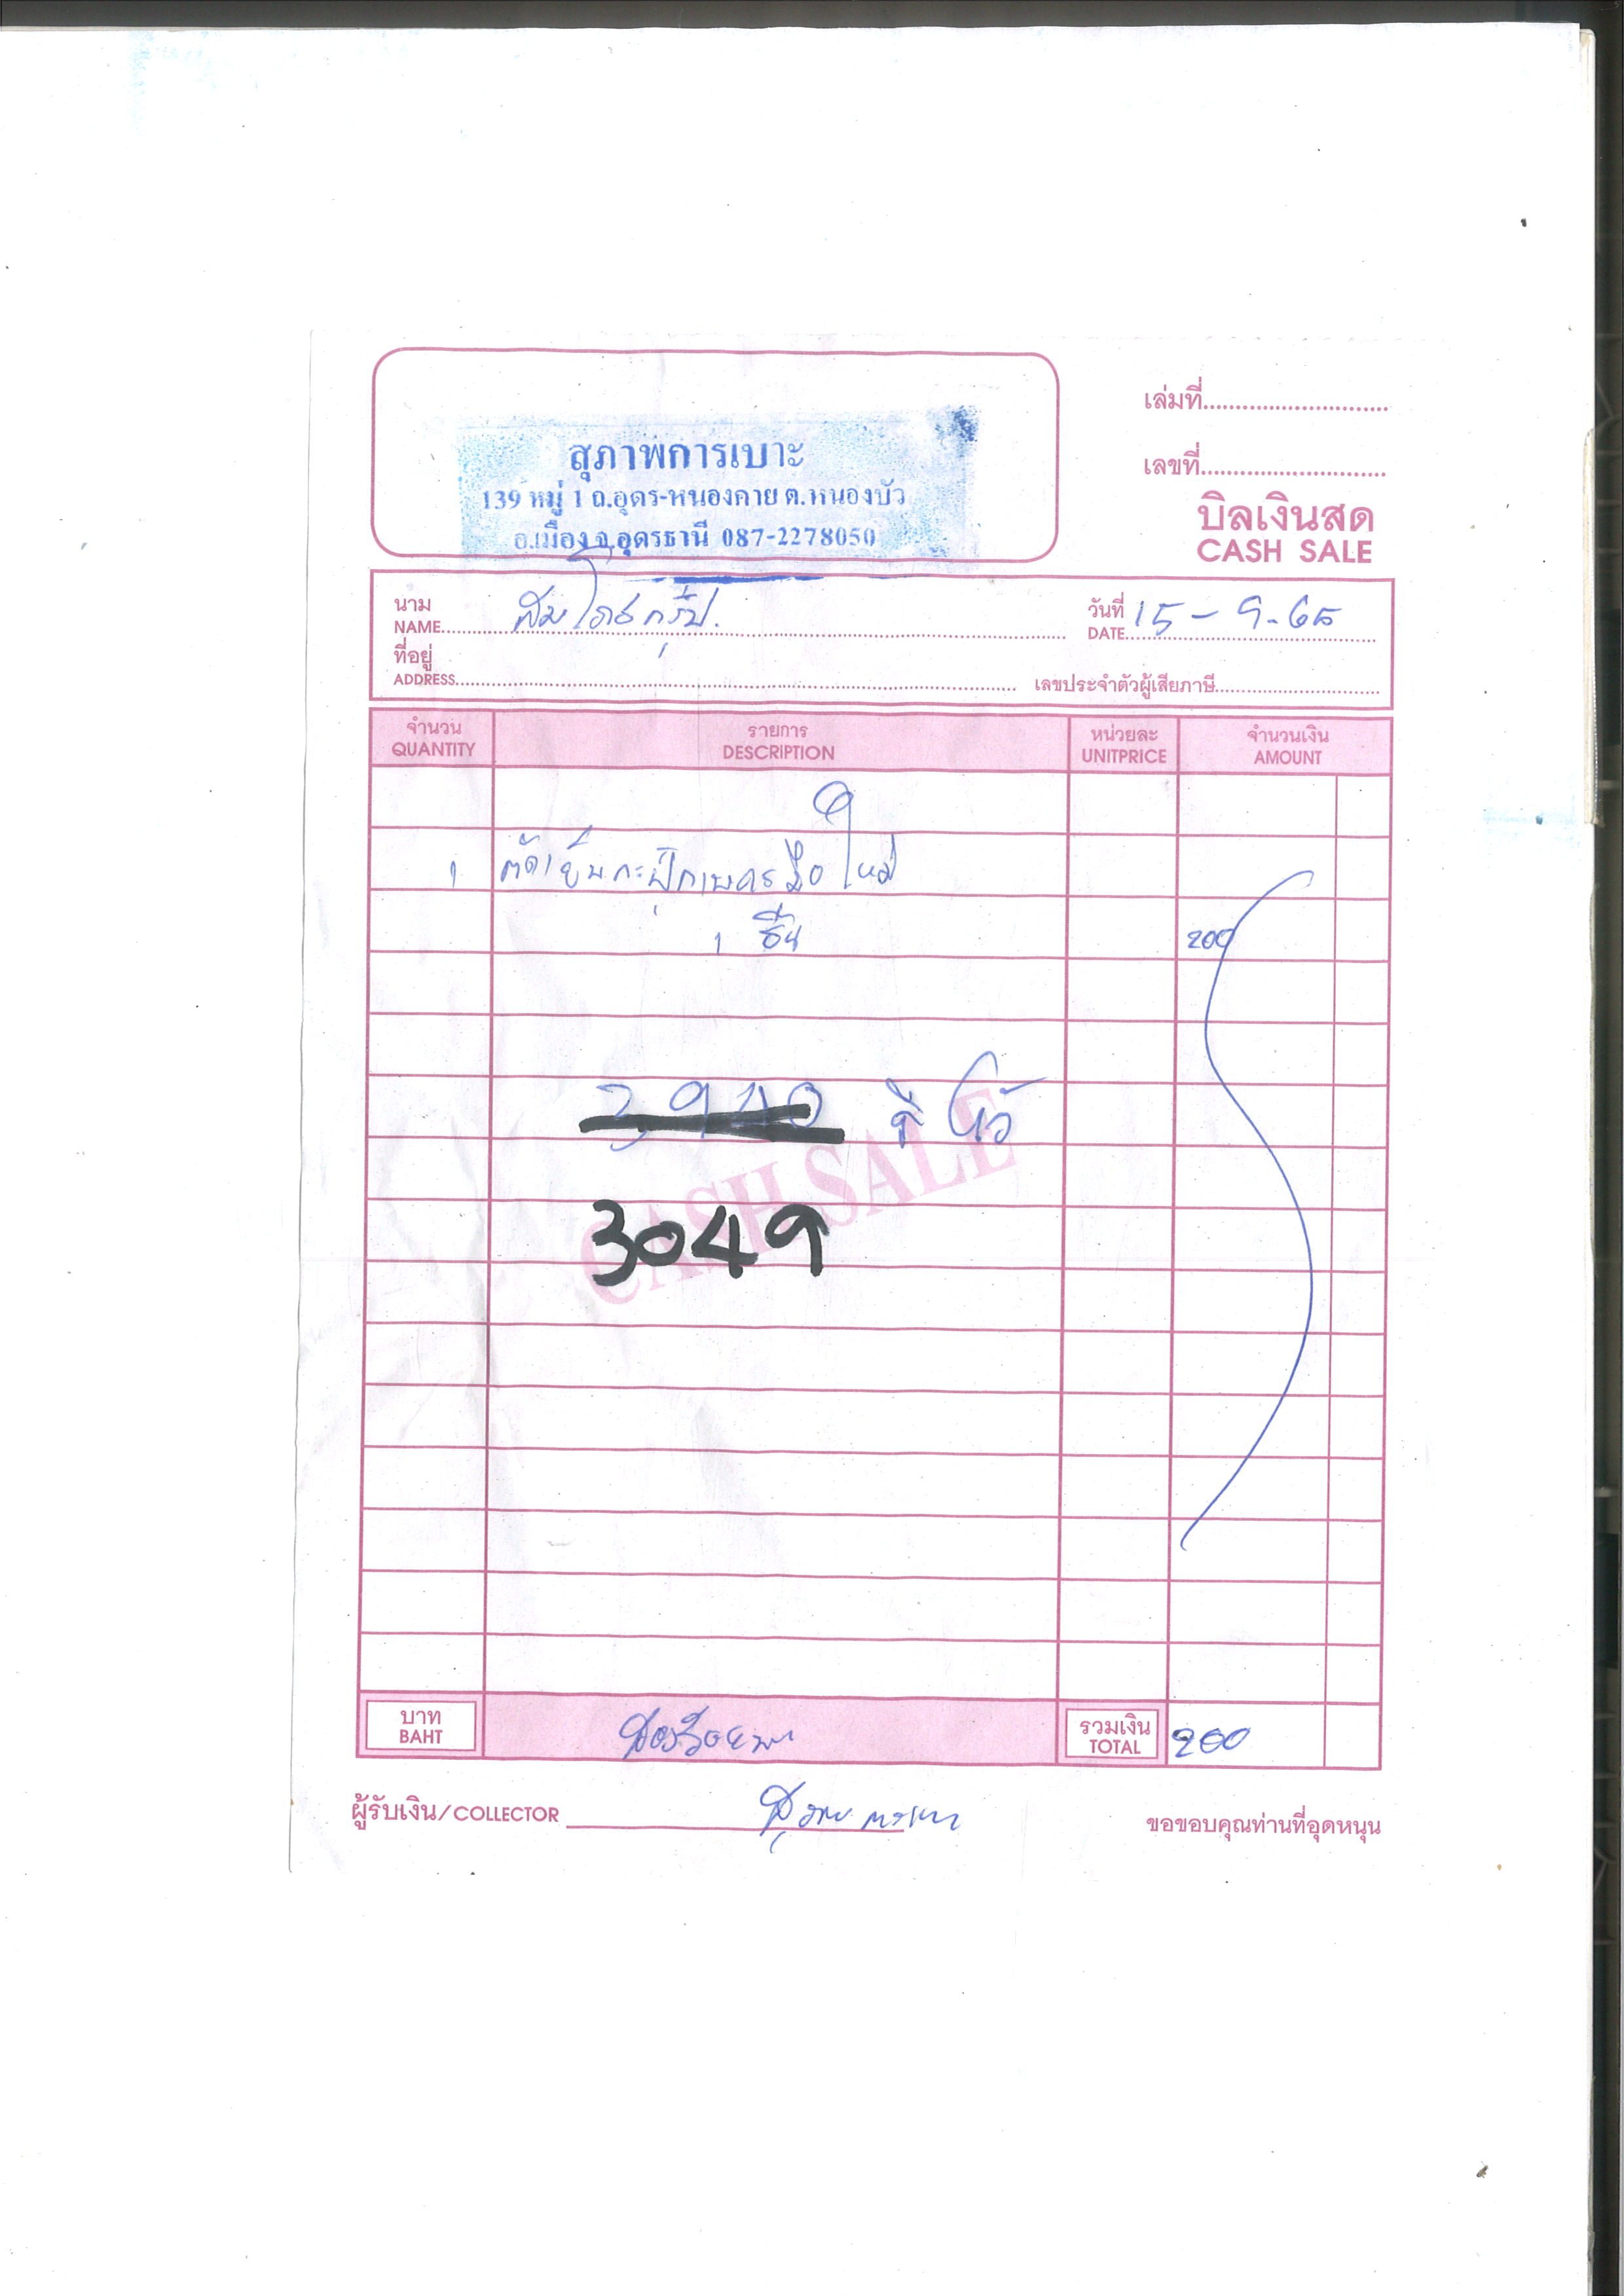 เล่มที่
สุภาพการเบาะ
เลขที่
139 หมู่ 1 ถ.อุดร-หนองคาย ต.หนองบัว
บิลเงินสด
อ.เมือง จ.อุดรธานี 087-2278050
CASH SALE
นาม วันที่
NAME สมโภชกรุ๊ป. DATE 15-9-65
ที่อยู่
ADDRESS เลขประจำตัวผู้เสียภาษี
จำนวน รายการ หน่วยละ จำนวนเงิน
QUANTITY DESCRIPTION UNITPRICE AMOUNT
1 ตัดเย็บกะปุกเบรคมือใหม่
1 ชิ้น 200
CASH SALE
3049
บาท รวมเงิน
BAHT สองร้อยบาท TOTAL 200
ผู้รับเงิน/COLLECTOR ขอขอบคุณท่านที่อุดหนุน